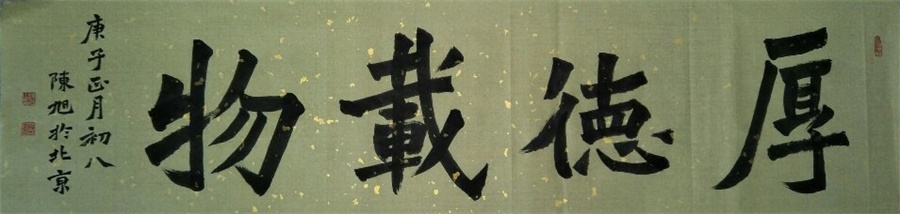 厚德載物
庚子正月初八
陳旭於北京